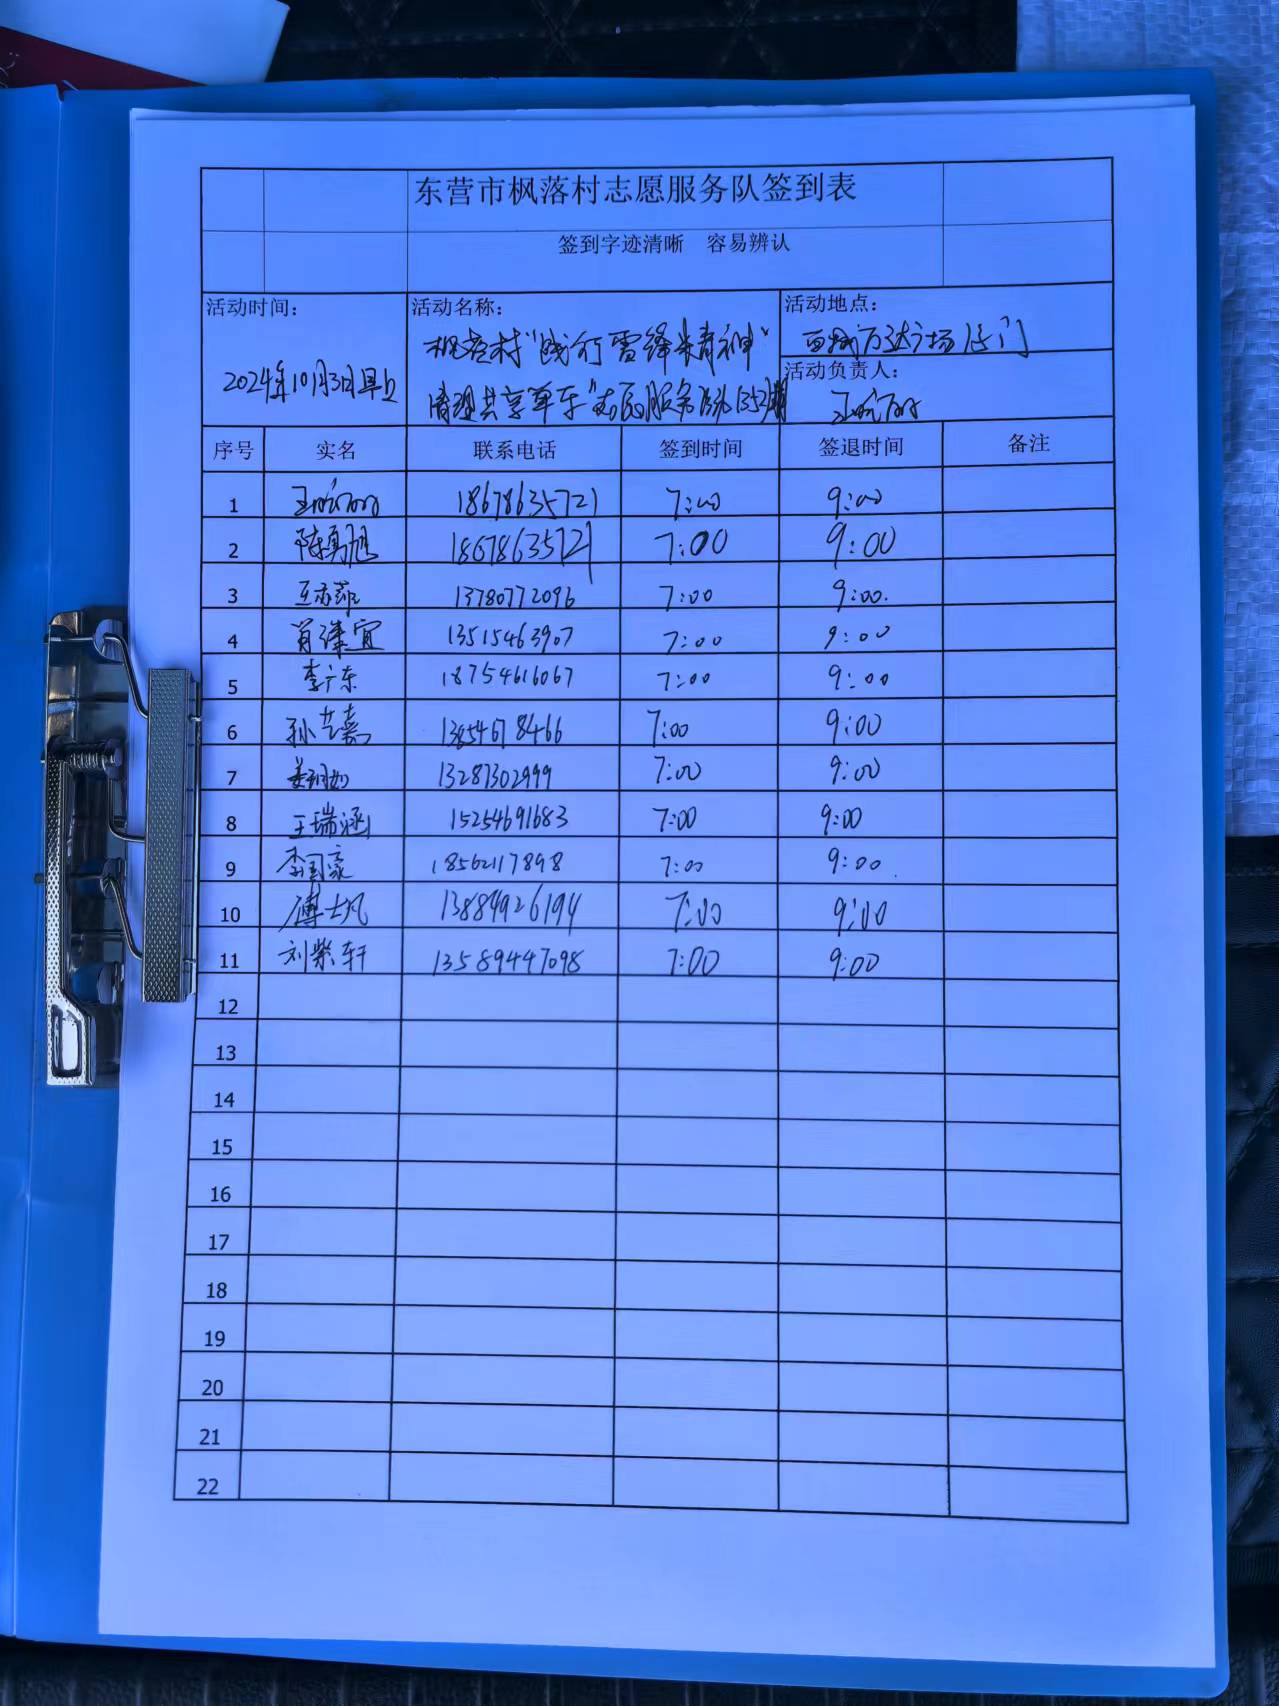 东营市枫落村志愿服务队签到表
签到字迹清晰 容易辨认
活动时间：
2024年10月3日早上
活动名称：
枫落村"践行雷锋精神"
清理共享单车"志愿服务活动1352期
活动地点：
西城万达广场
活动负责人：
序号 实名 联系电话 签到时间 签退时间 备注
1 18678635721 7:00 9:00
2 陈勇旭 18678635721 7:00 9:00
3 13780772096 7:00 9:00
4 肖泽宜 13515463907 7:00 9:00
5 李广东 18754616067 7:00 9:00
6 孙艺嘉 13854678466 7:00 9:00
7 13287302999 7:00 9:00
8 王瑞涵 15254691683 7:00 9:00
9 李国豪 18562117898 7:00 9:00
10 傅士凡 13884926194 7:00 9:00
11 刘紫轩 13589447098 7:00 9:00
12
13
14
15
16
17
18
19
20
21
22